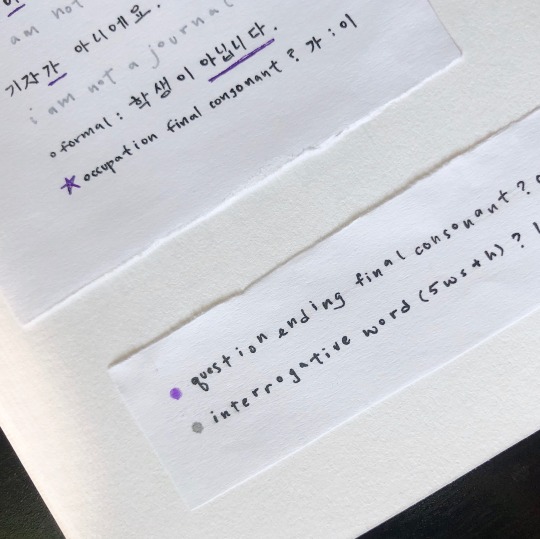 am not
기자가 아니에요.
i am not a journal
formal : 학생이 아닙니다.
occupation final consonant ? 가 : 이
question ending final consonant ?
interrogative word (5ws+h) ?